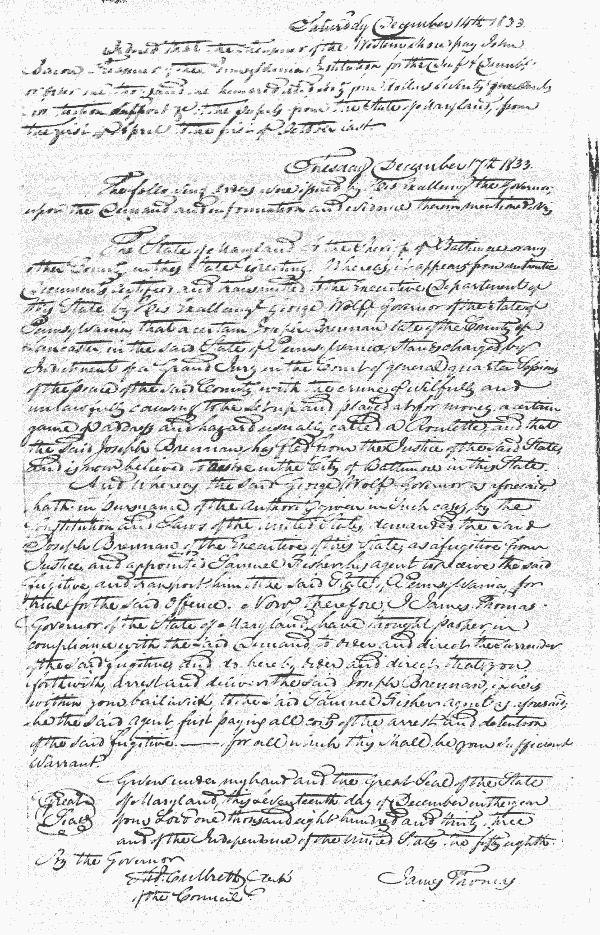 Saturday December 14th 1833
Ordered that the Treasurer of the Western Shore pay John
Bacon Treasurer of the Pennsylvania Institution for the Deaf & Dumb,
or order one thousand one hundred and dollars seventy cents
for tuition support &c of the pupils from the State of Maryland, from
the first of April to the first of October last
Tuesday December 17th 1833.
The following order was issued by His Excellency the Governor,
upon the Demand and information and evidence therein mentioned viz
The State of Maryland to the Sheriff of Baltimore or any
other County in this State Greeting. Whereas it appears from authentic
Documents certified and transmitted to the Executive Department of
this State by His Excellency George Wolf, Governor of the state of
Pennsylvania, that a certain Joseph Brennan late of the County of
Lancaster, in the said State of Pennsylvania, stands charged by
Indictment of a Grand Jury in the Court of general quarter Sessions
of the peace of the said County with the crime of wilfully and
unlawfully causing to be set up and played at for money, a certain
game of address and hazard usually called a Roulette, and that
the said Joseph Brennan has fled from the Justice of the said State,
and is now believed to be in the City of Baltimore in this State.
And whereas the said George Wolf Governor as aforesaid
hath in pursuance of the Authority given in such case, by the
Constitution and Laws of the United States, demanded the said
Joseph Brennan of the Executive of this State, as a fugitive from
Justice, and appointed Samuel Fisher his agent to receive the said
fugitive and transport him to the said State of Pennsylvania, for
trial for the said Offence. Now therefore I James Thomas
Governor of the State of Maryland, have thought proper in
compliance with the said Demand, to order and direct the surrender
of the said fugitive, and do hereby order and direct that you
forthwith, arrest and deliver the said Joseph Brennan, if he is
within your bailiwick, to the said Samuel Fisher agent as aforesaid,
he the said agent first paying all costs of the arrest and detention
of the said fugitive. — for all which this shall be your sufficient
Warrant.
Given under my hand and the Great Seal of the State
Great of Maryland, this seventeenth day of December in the year
Seal of our Lord one thousand eight hundred and thirty three
and of the Independence of the United States the fifty eighth.
By the Governor
Th. Culbreth Clerk James Thomas
of the Council.